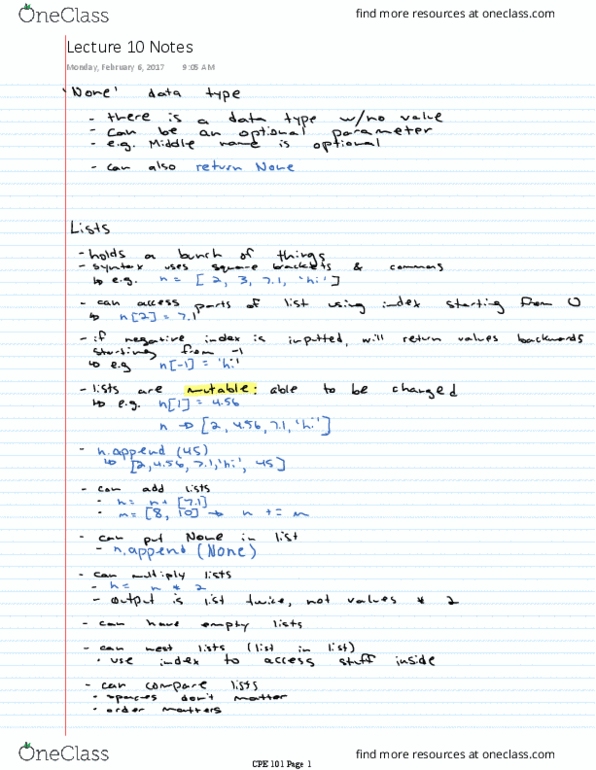 OneClass
find more resources at oneclass.com
Lecture 10 Notes
Monday, February 6, 2017 9:05 AM
'None' data type
- there is a data type w/no value
- can be an optional parameter
- e.g. Middle name is optional
- can also return None
Lists
- holds a bunch of things
- syntax uses square brackets & commas
↳ e.g. n = [2, 3, 7.1, 'hi']
- can access parts of list using index starting from 0
↳ n[2] = 7.1
- if negative index is inputted, will return values backwards
starting from -1
↳ e.g n[-1] = 'hi'
- lists are mutable: able to be changed
↳ e.g. n[1] = 4.56
n → [2, 4.56, 7.1, 'hi']
- n.append (45)
↳ [2, 4.56, 7.1, 'hi', 45]
- can add lists
• n = n + [7.1]
• m = [8, 10] → n += m
- can put None in list
- n.append (None)
- can multiply lists
- n = n * 2
- output is list twice, not values * 2
- can have empty lists
- can nest lists (list in list)
• use index to access stuff inside
- can compare lists
• spaces don't matter
• order matters
OneClass
find more resources at oneclass.com
CPE 101 Page 1